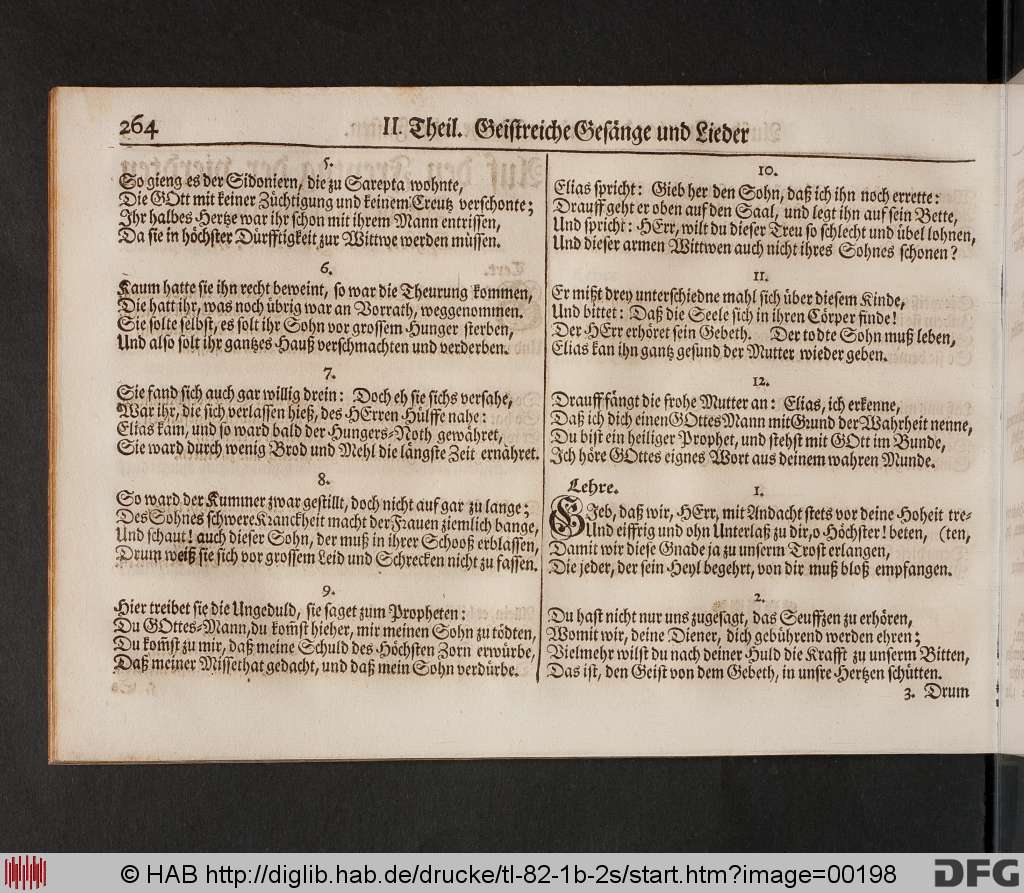 264
II. Theil. Geistreiche Gesänge und Lieder
5.
So gieng es der Sidoniern, die zu Sarepta wohnte,
Die GOtt mit keiner Züchtigung und keinem Creutz verschonte;
Ihr halbes Hertze war ihr schon mit ihrem Mann entrissen,
Da sie in höchster Dürfftigkeit zur Wittwe werden müssen.
6.
Kaum hatte sie ihn recht beweint, so war die Theurung kommen,
Die hatt ihr, was noch übrig war an Vorrath, weggenommen.
Sie solte selbst, es solt ihr Sohn vor grossem Hunger sterben,
Und also solt ihr gantzes Hauß verschmachten und verderben.
7.
Sie fand sich auch gar willig drein: Doch eh sie sichs versahe,
War ihr, die sich verlassen hieß, des HErren Hülffe nahe:
Elias kam, und so ward bald der Hungers-Noth gewähret,
Sie ward durch wenig Brod und Mehl die längste Zeit ernähret.
8.
So ward der Kummer zwar gestillt, doch nicht auf gar zu lange;
Des Sohnes schwere Kranckheit macht der Frauen ziemlich bange,
Und schaut! auch dieser Sohn, der muß in ihrer Schooß erblassen,
Drum weiß sie sich vor grossem Leid und Schrecken nicht zu fassen.
9.
Hier treibet sie die Ungeduld, sie saget zum Propheten:
Du GOttes-Mann, du kom̃st hieher, mir meinen Sohn zu tödten,
Du kom̃st zu mir, daß meine Schuld des Höchsten Zorn erwürbe,
Daß meiner Missethat gedacht, und daß mein Sohn verdürbe.
10.
Elias spricht: Gieb her den Sohn, daß ich ihn noch errette:
Drauff geht er oben auf den Saal, und legt ihn auf sein Bette,
Und spricht: HErr, wilt du dieser Treu so schlecht und übel lohnen,
Und dieser armen Wittwen auch nicht ihres Sohnes schonen?
11.
Er mißt drey unterschiedne mahl sich über diesem Kinde,
Und bittet: Daß die Seele sich in ihren Cörper finde!
Der HErr erhöret sein Gebeth. Der todte Sohn muß leben,
Elias kan ihn gantz gesund der Mutter wieder geben.
12.
Drauff fängt die frohe Mutter an: Elias, ich erkenne,
Daß ich dich einen GOttes Mann mit Grund der Wahrheit nenne,
Du bist ein heiliger Prophet, und stehst mit GOtt im Bunde,
Ich höre GOttes eignes Wort aus deinem wahren Munde.
Lehre. 1.
GJeb, daß wir, HErr, mit Andacht stets vor deine Hoheit tre-
Und eiffrig und ohn Unterlaß zu dir, o Höchster! beten, (ten,
Damit wir diese Gnade ja zu unserm Trost erlangen,
Die jeder, der sein Heyl begehrt, von dir muß bloß empfangen.
2.
Du hast nicht nur uns zugesagt, das Seuffzen zu erhören,
Womit wir, deine Diener, dich gebührend werden ehren;
Vielmehr wilst du nach deiner Huld die Krafft zu unserm Bitten,
Das ist, den Geist von dem Gebeth, in unsre Hertzen schütten.
3. Drum
© HAB http://diglib.hab.de/drucke/tl-82-1b-2s/start.htm?image=00198
DFG